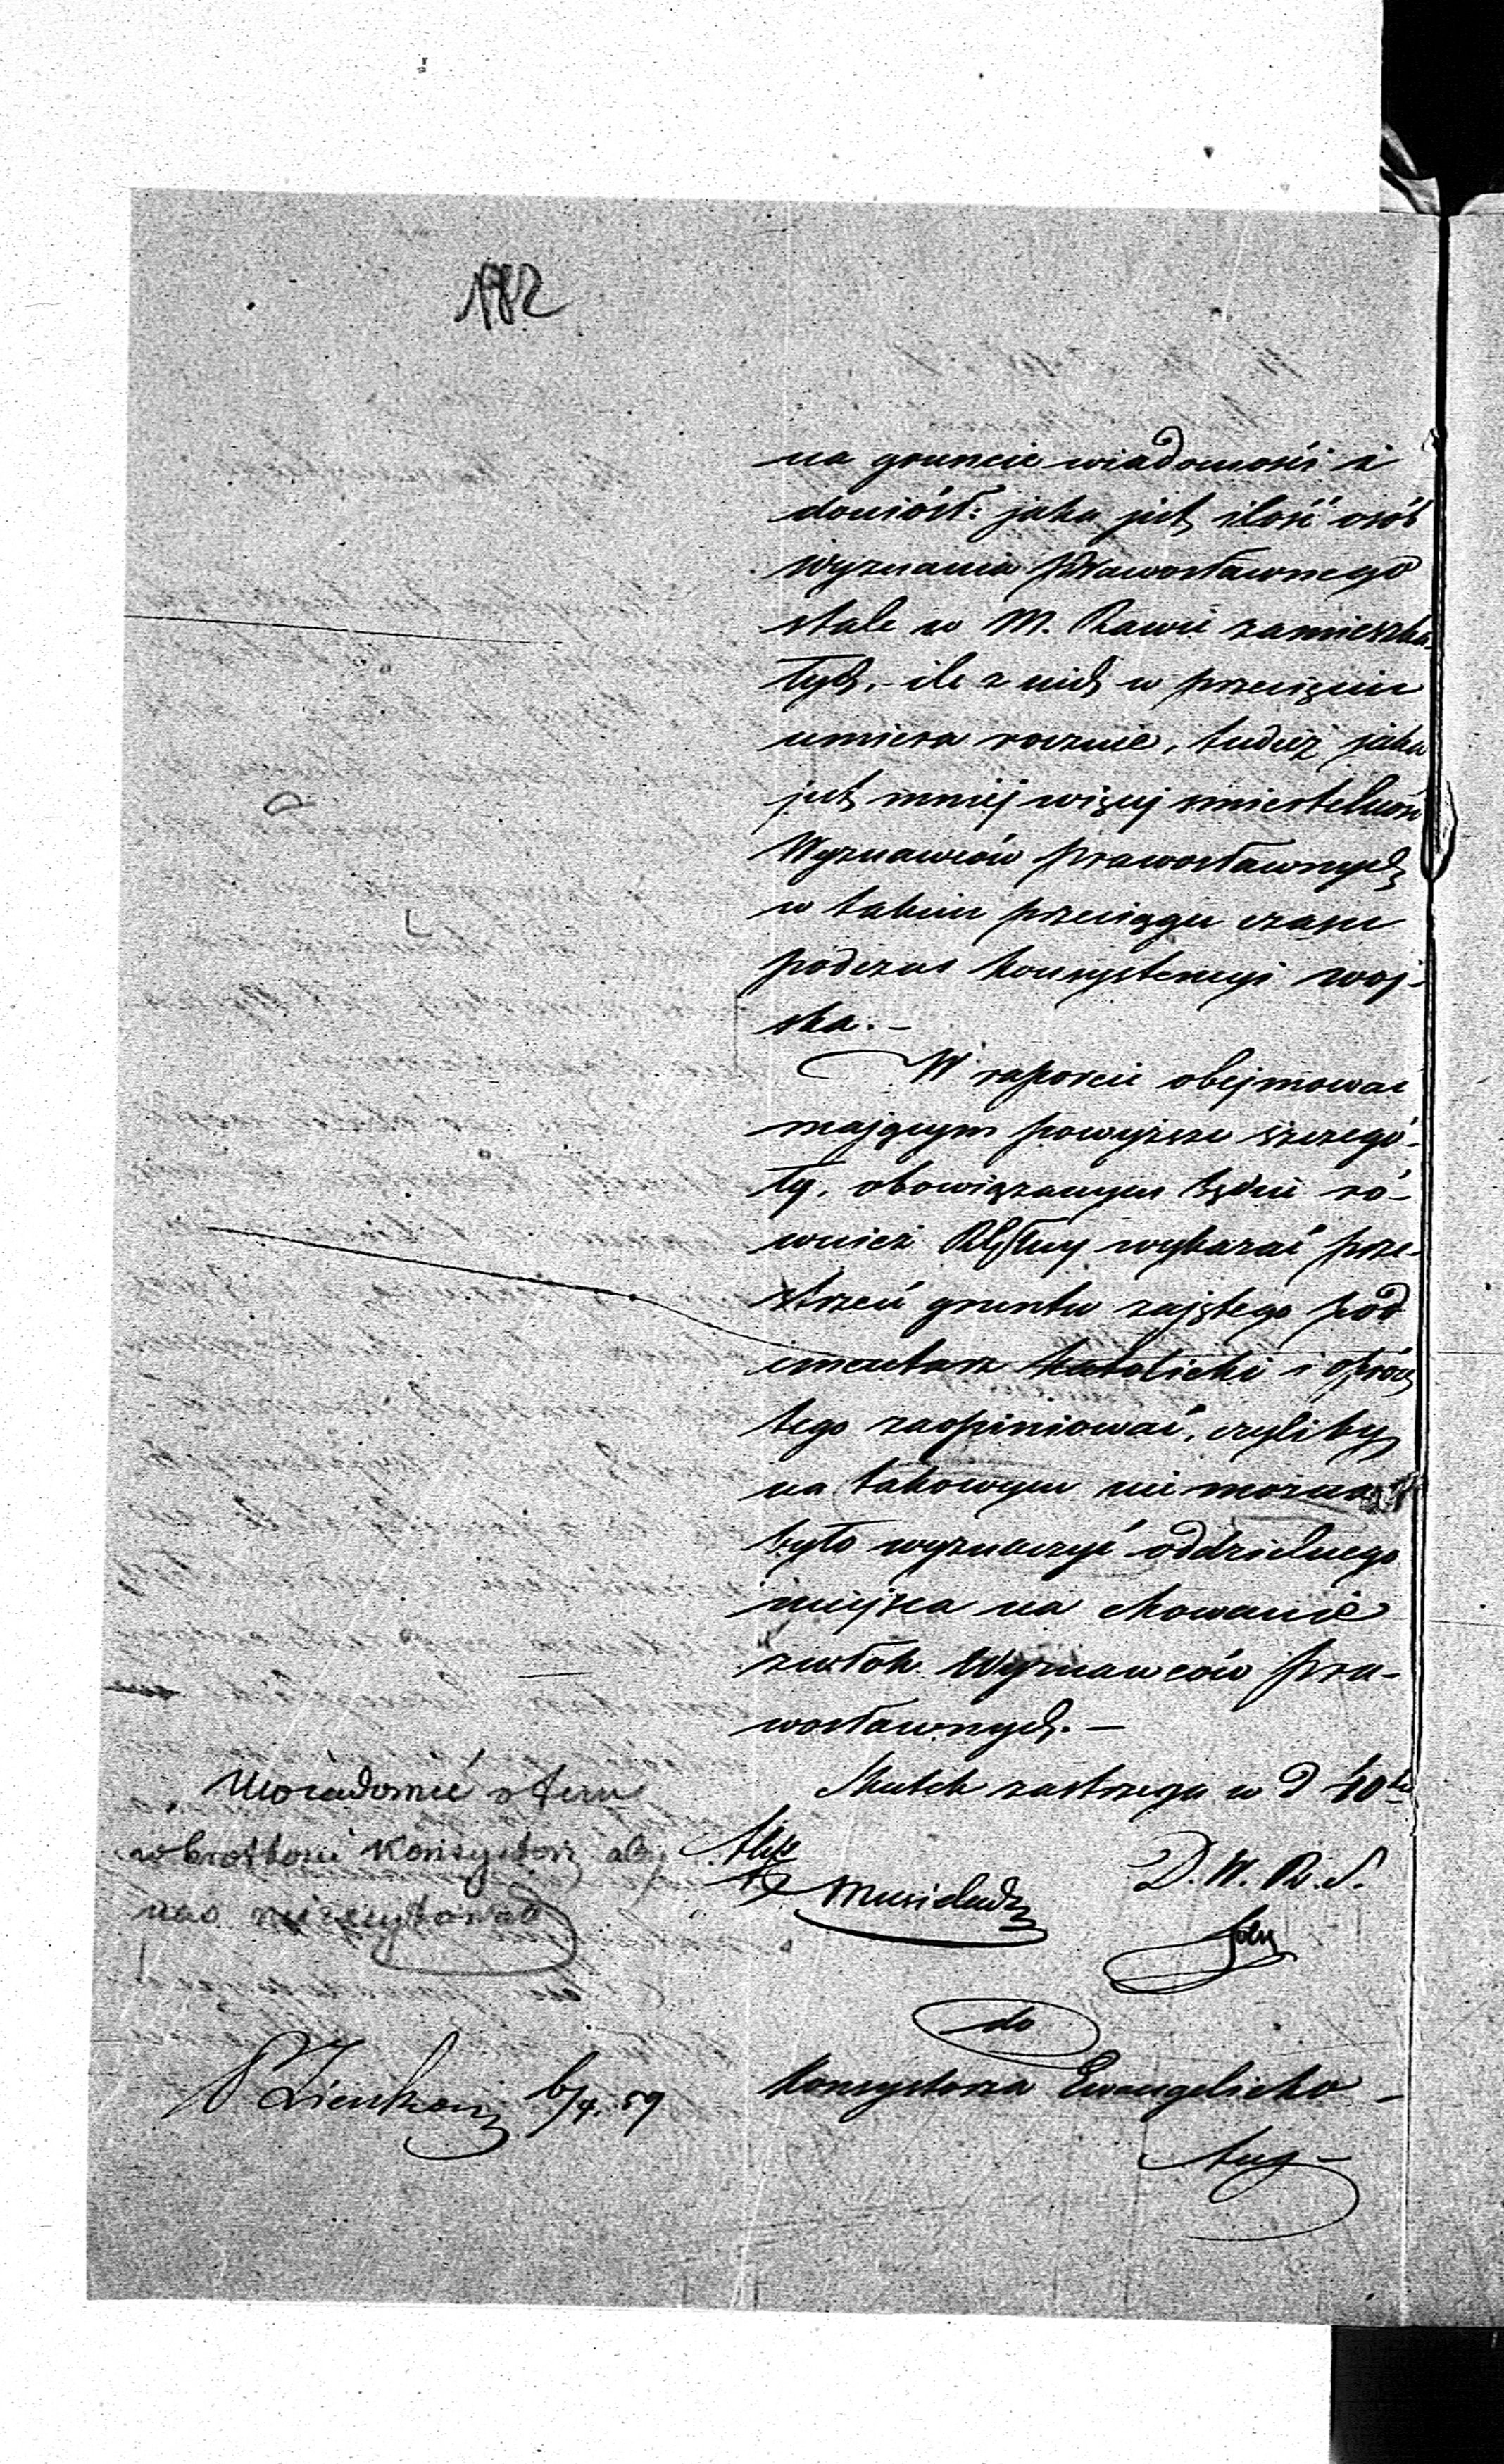 182
na gruncie wiadomości i
doniósł: jaka jest ilość osób
wyznania prawosławnego
stale w M. Rawie zamieszka-
łych, - ile z nich w przecięciu
umiera rocznie, tudzież jaka
jest mniej więcej śmiertelność
Wyznawców prawosławnych
w takim przeciągu czasu
podczas konsystencyi woj-
ska. -
W raporcie obejmować
mającym powyższe szczegó-
ły, obowiązanym będzie ró-
wnież wykazać prze-
strzeń gruntu zajętego pod
cmentarz katolicki i oprócz
tego zaopiniować, czyliby
na takowym nie można
było wyznaczyć oddzielnego
miejsca na chowanie
zwłok Wyznawców pra-
wosławnych. -
Skutek zastrzega w d 10
D. W. R. S.
do
Konsystorza Ewangelicko -
Aug -
Uwiadomić o tem
w krótkości Konsystorz aby
nas
6/4. 59